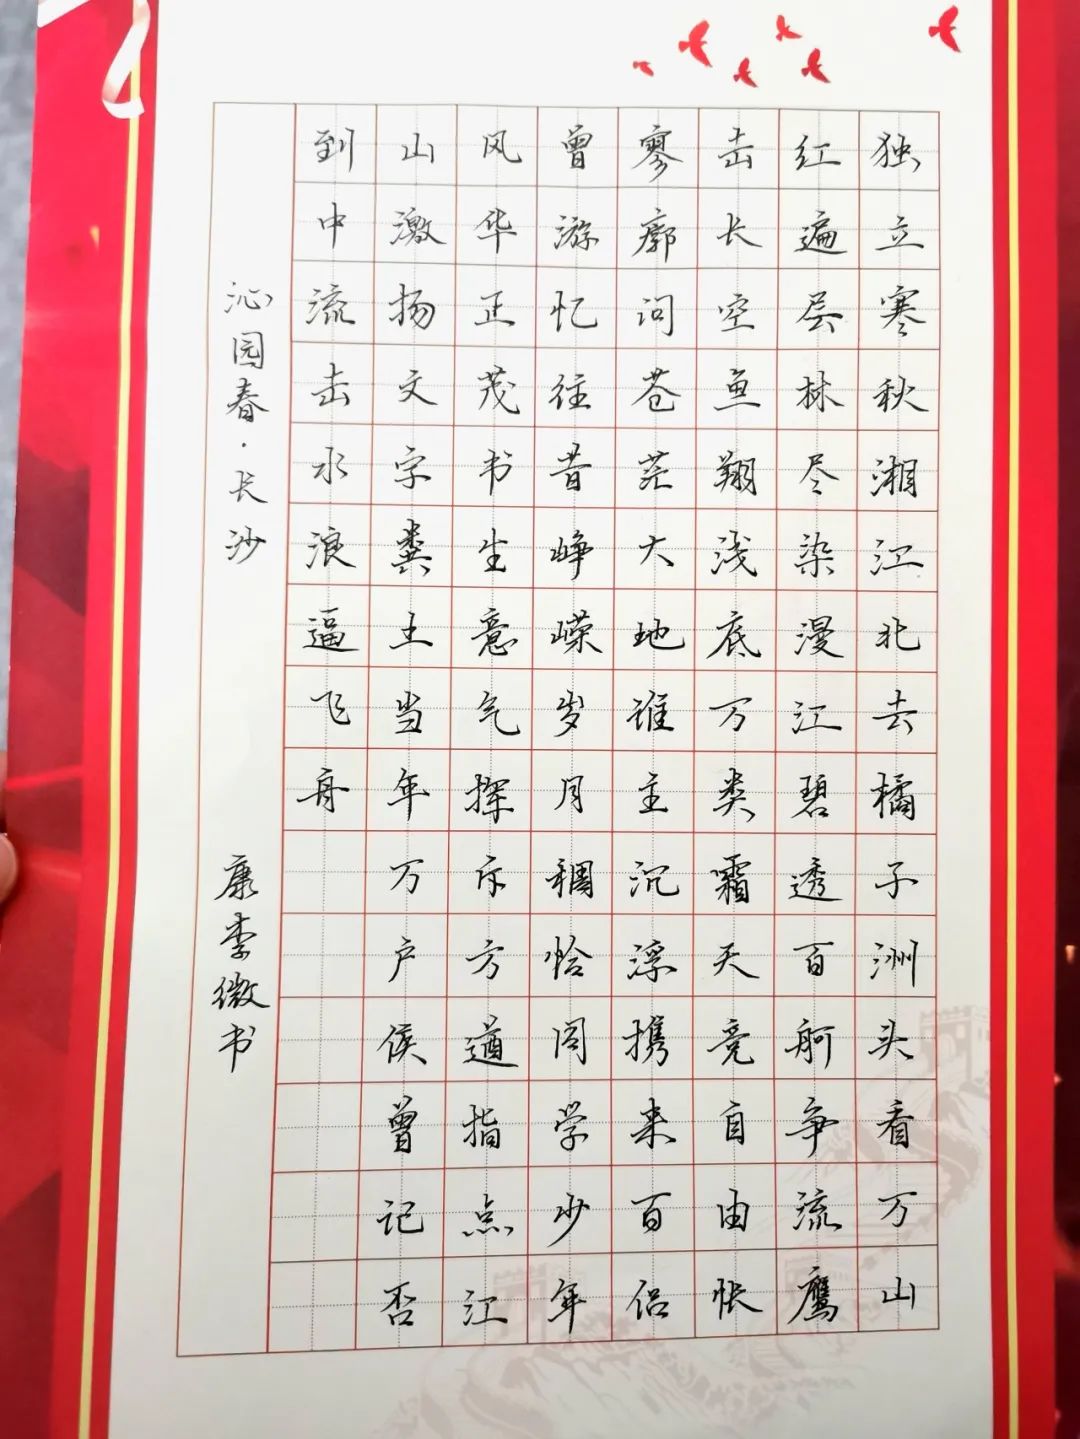 独立寒秋湘江北去橘子洲头看万山
红遍层林尽染漫江碧透百舸争流鹰
击长空鱼翔浅底万类霜天竞自由怅
寥廓问苍茫大地谁主沉浮携来百侣
曾游忆往昔峥嵘岁月稠恰同学少年
风华正茂书生意气挥斥方遒指点江
山激扬文字粪土当年万户侯曾记否
到中流击水浪遏飞舟
沁园春·长沙
康李微书